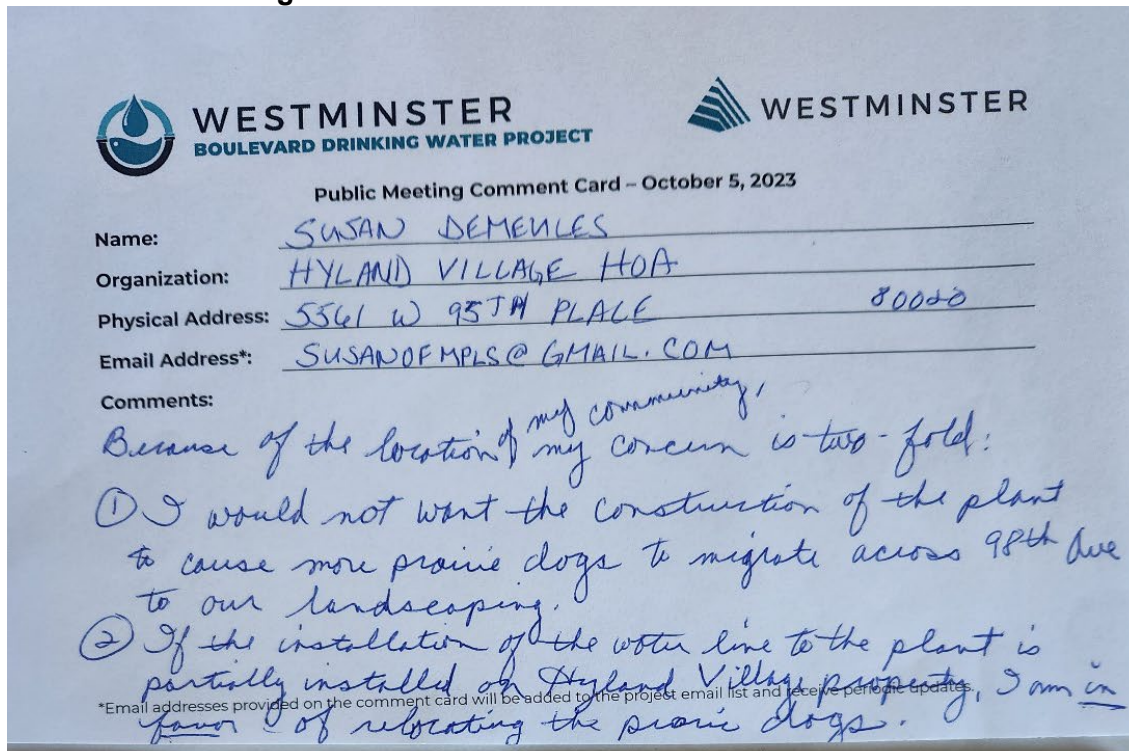 WESTMINSTER
BOULEVARD DRINKING WATER PROJECT
WESTMINSTER
Public Meeting Comment Card – October 5, 2023
Name: SUSAN DEMEULES
Organization: HYLAND VILLAGE HOA
Physical Address: 5561 W 95TH PLACE 80020
Email Address*: SUSANOFMPLS@GMAIL.COM
Comments:
Because of the location of my community, my concern is two-fold:
① I would not want the construction of the plant
to cause more prairie dogs to migrate across 98th Ave
to our landscaping.
② If the installation of the water line to the plant is
partially installed on Hyland Village property, I am in
*Email addresses provided on the comment card will be added to the project email list and receive periodic updates.
favor of relocating the prairie dogs.